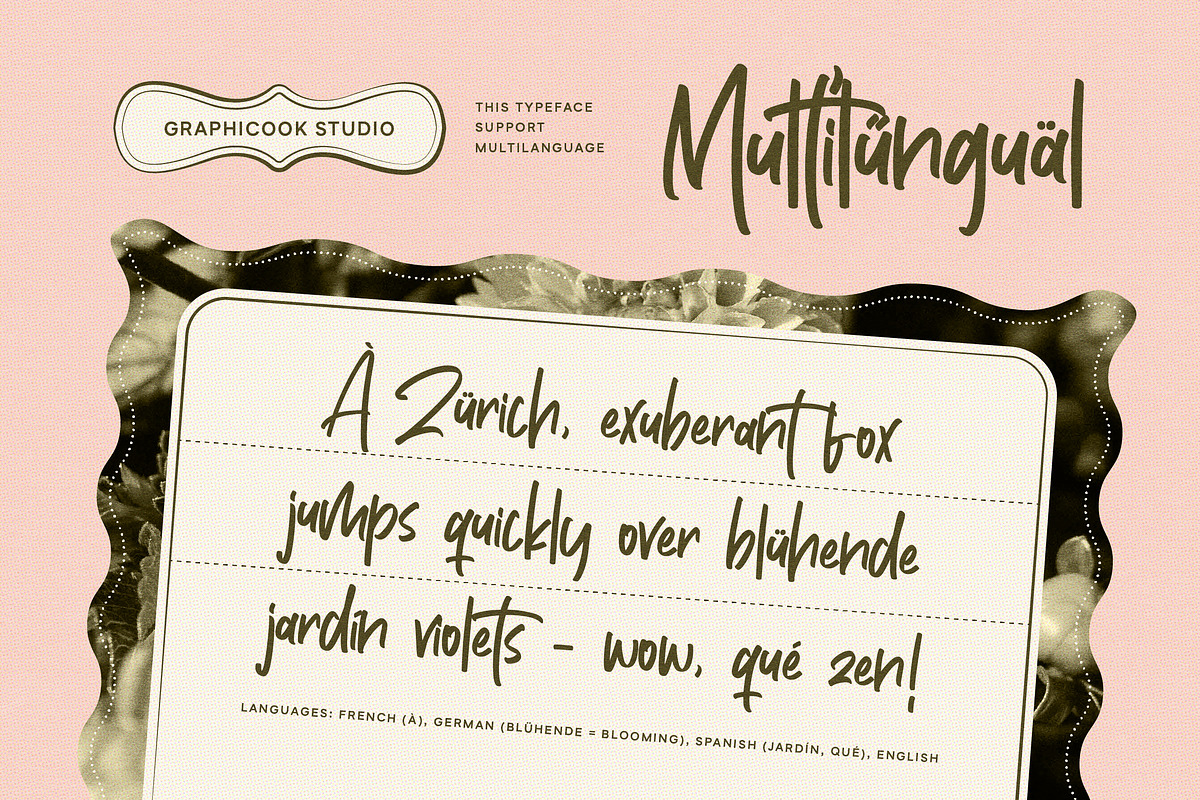 GRAPHICOOK STUDIO
THIS TYPEFACE
SUPPORT
MULTILANGUAGE
À Zürich, exuberant fox
jumps quickly over blühende
jardín violets – wow, qué zen!
LANGUAGES: FRENCH (À), GERMAN (BLÜHENDE = BLOOMING), SPANISH (JARDÍN, QUÉ), ENGLISH